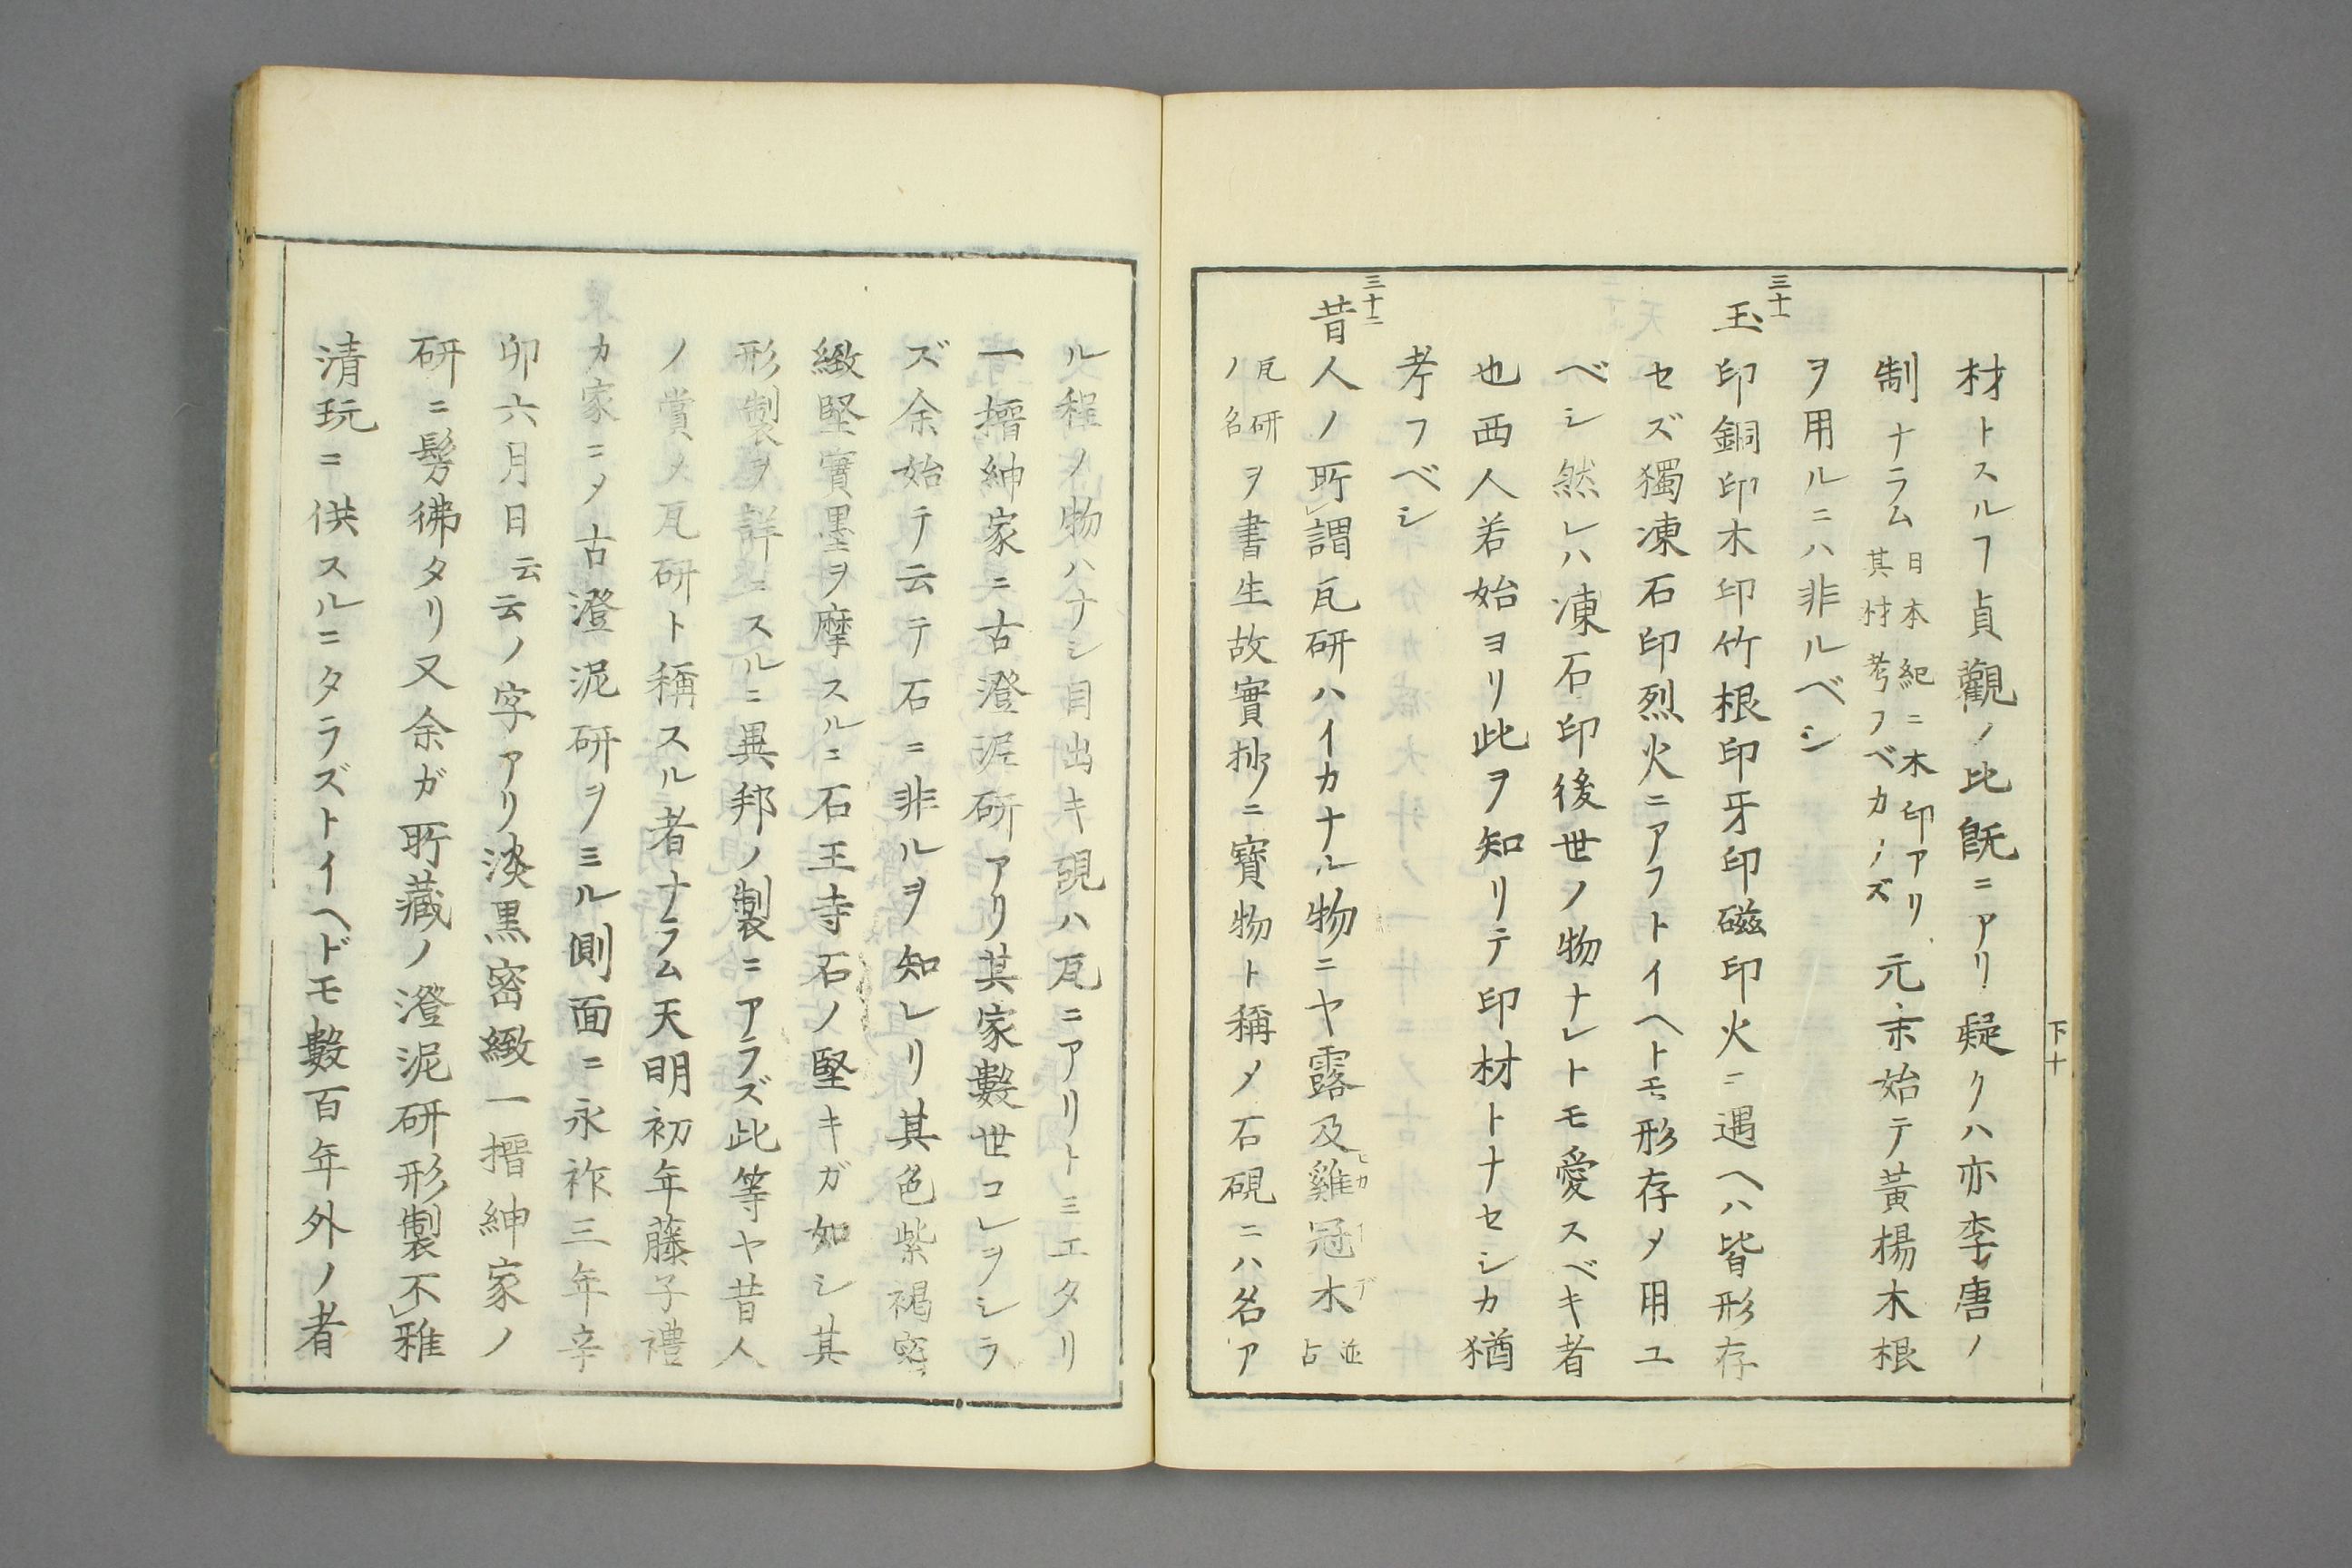 材トスルヿ貞觀ノ比旣ニアリ疑クハ亦李唐ノ
制ナラム日本紀ニ木印アリ其材考フベカラズ元末始テ黃楊木根
ヲ用ルニハ非ルベシ
三十一
玉印銅印木印竹根印牙印磁印火ニ遇ヘハ皆形存
セズ獨凍石印烈火ニアフトイヘトモ形存乄用ユ
ベシ然レハ凍石印後世ノ物ナレトモ愛スベキ者
也西人若始ヨリ此ヲ知リテ印材トナセシカ猶
考フベシ
三十二
昔人ノ所謂瓦研ハイカナル物ニヤ露及雞冠木並占
瓦研ノ名ヲ書生故實抄ニ寳物ト稱乄石硯ニハ名ア
下十
ル程ノ物ハナシ目出キ硯ハ瓦ニアリトミエタリ
一搢紳家ニ古澄泥研アリ其家數世コレヲシラ
ズ余始テ云テ石ニ非ルヲ知レリ其色紫褐密
緻堅實墨ヲ摩スルニ石王寺石ノ堅キガ如シ其
形製ヲ詳ニスルニ異邦ノ製ニアラズ此等ヤ昔人
ノ賞乄瓦研ト稱スル者ナラム天明初年藤子禮
カ家ニ乄古澄泥研ヲミル側面ニ永祚三年辛
卯六月日云云ノ字アリ淡黒密緻一搢紳家ノ
研ニ髣彿タリ又余ガ所藏ノ澄泥研形製不雅
清玩ニ供スルニタラズトイヘドモ數百年外ノ者